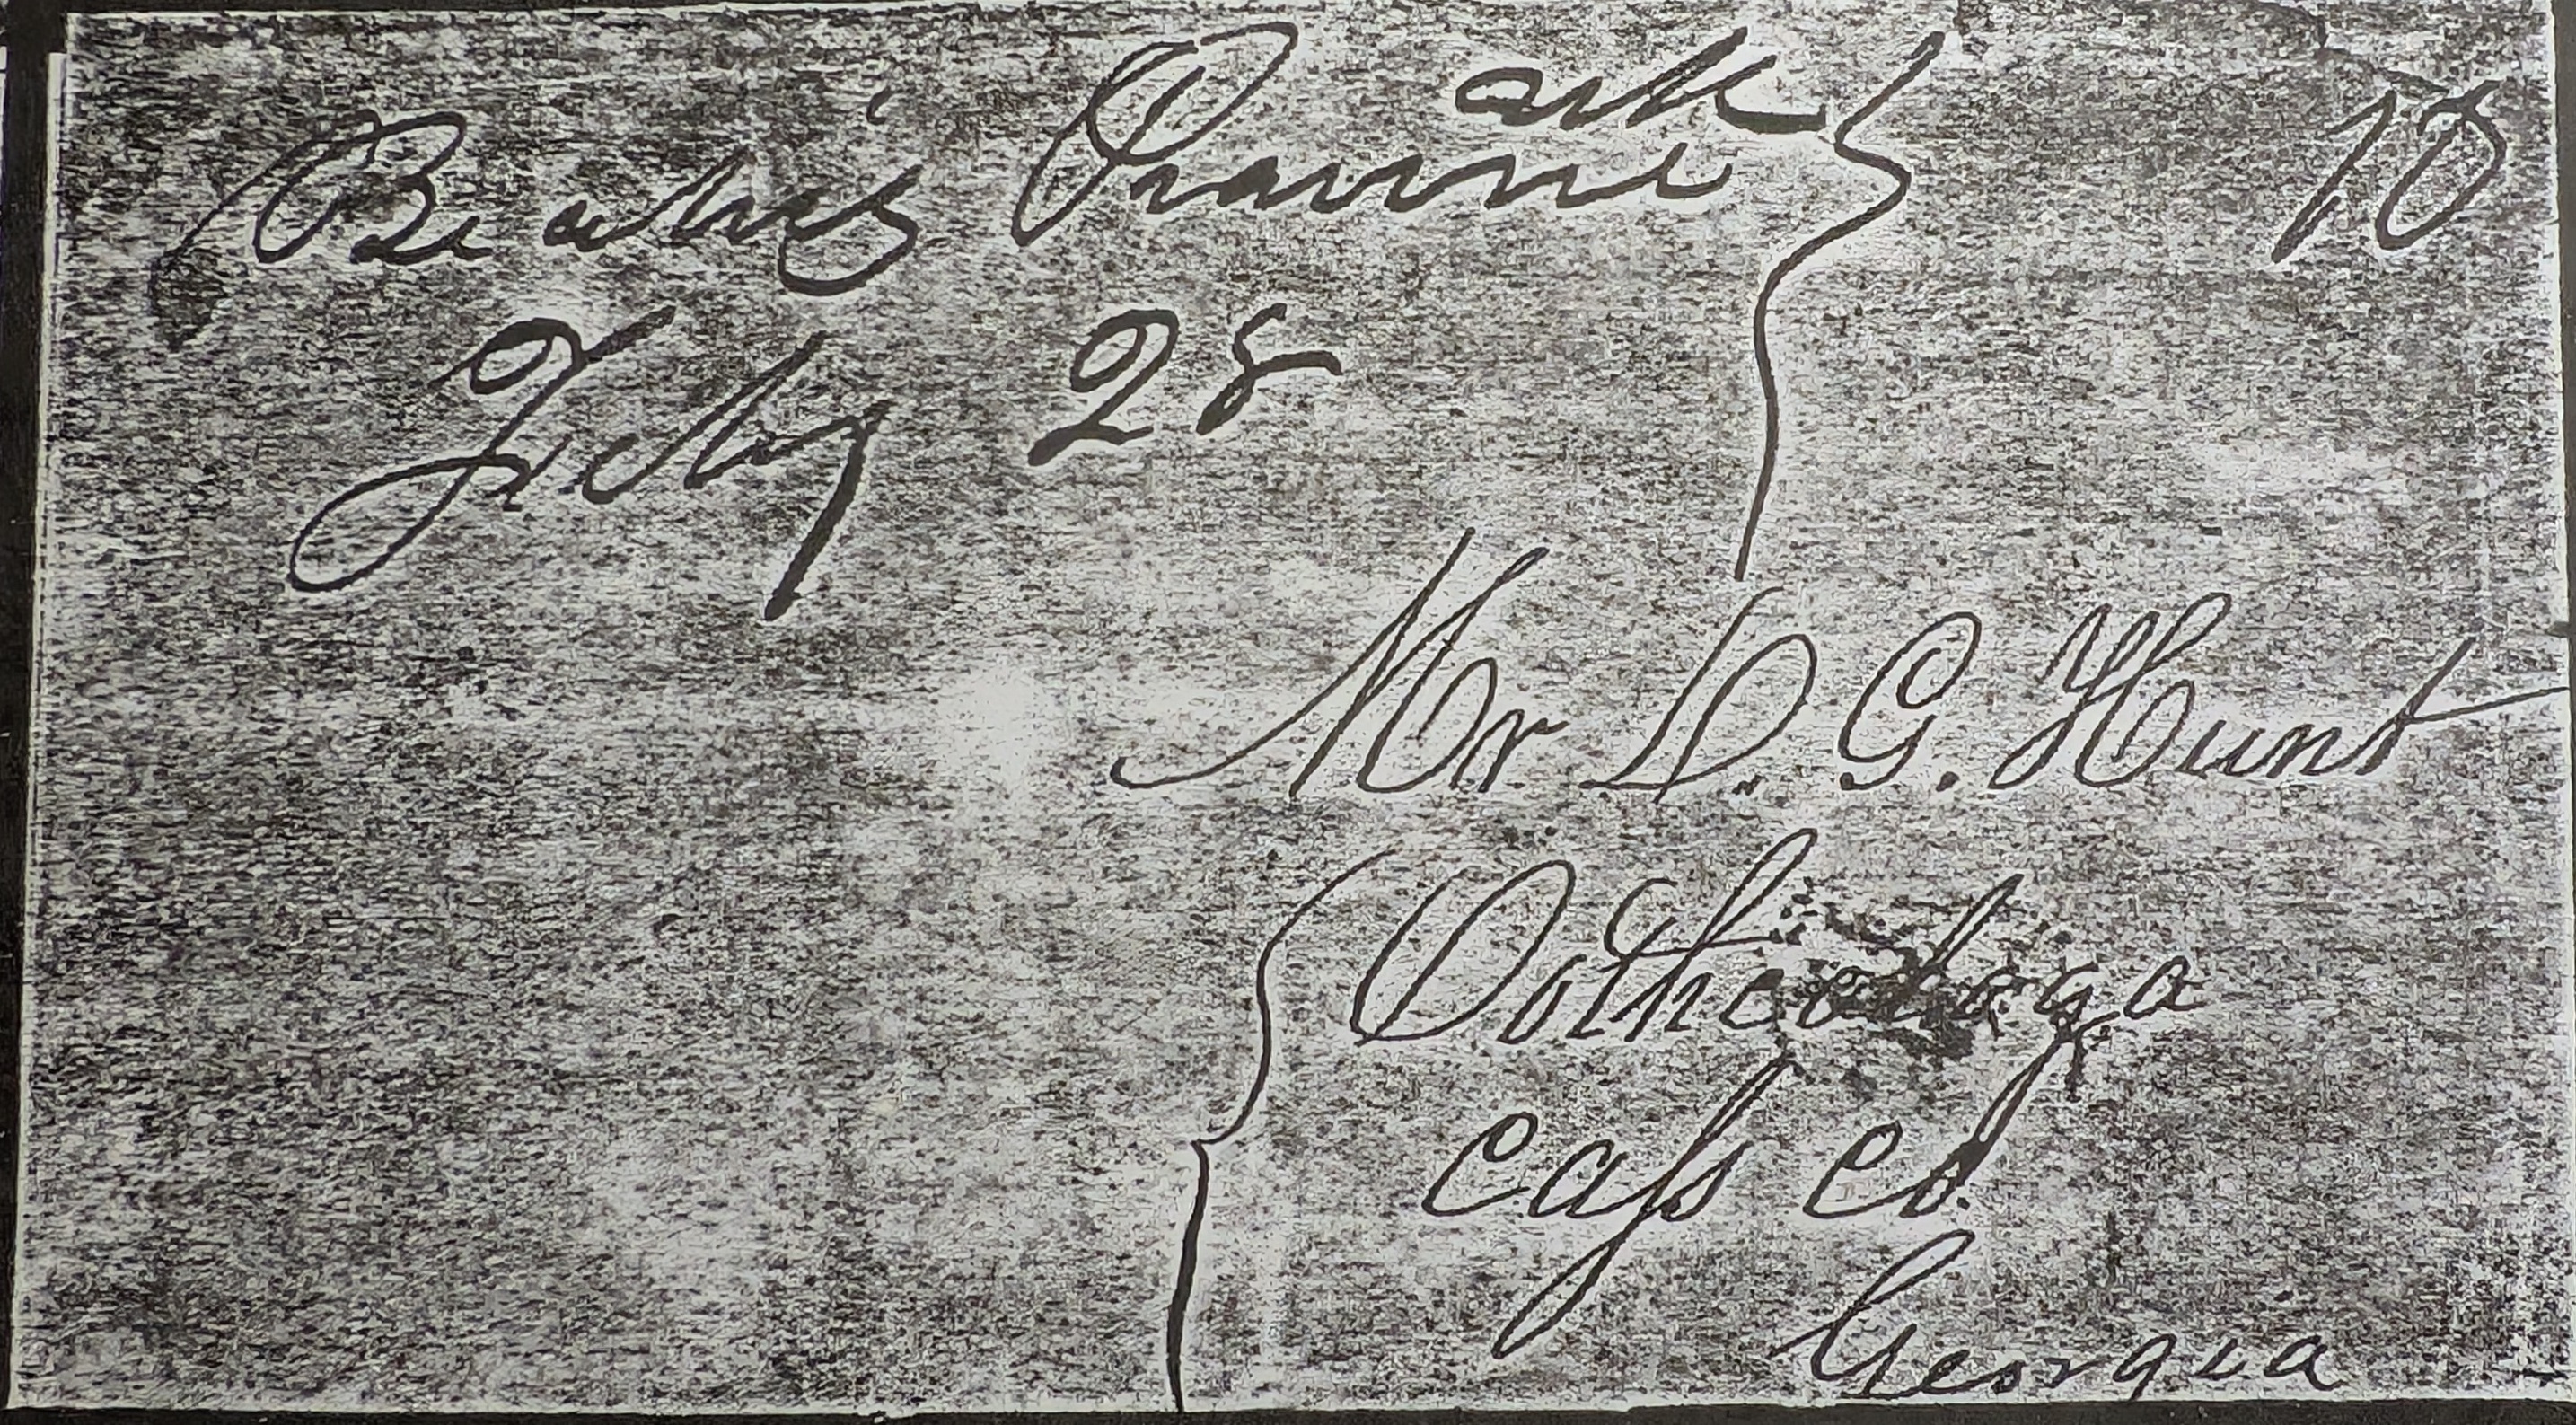 Beatie's Prairie Ark
10
Feby 28
Mr D. G. Hunt
Oothcaloga
Cass Co.
Georgia